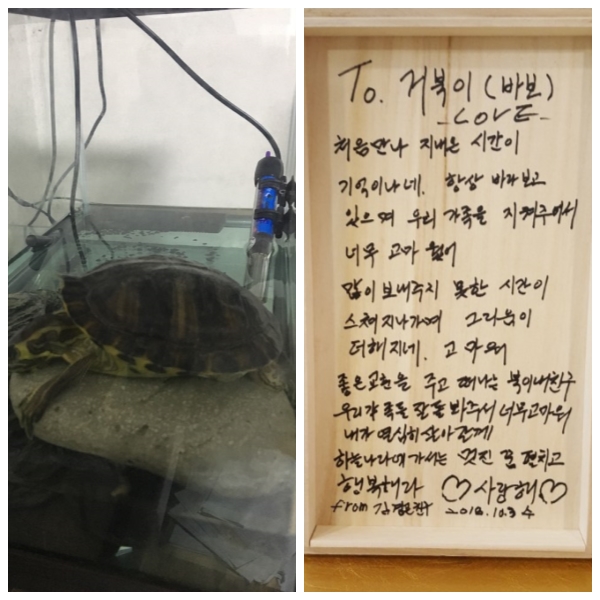 To. 거북이 (바보)
-LOVE-
처음만나 지내온 시간이
기억이나네. 항상 바라보고
있으며 우리 가족을 지켜주어서
너무 고마웠어
많이 보내주지 못한 시간이
스쳐지나가며 그리움이
더해지네. 고마워
좋은교훈을 주고 떠나는 북이내친구
우리가족을 잘돌봐주서 너무고마워
내가 열심히살아갈게
하늘나라에 가서는 멋진 꿈 펼치고
행복해라 ♡사랑해♡
from 2018.10.3 수